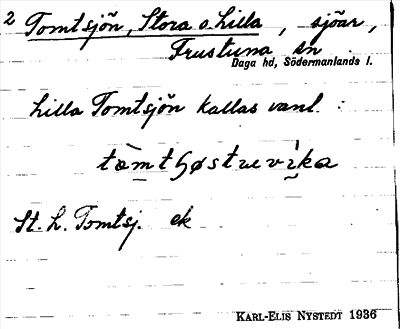 2 Tomtsjön, Stora o. Lilla, sjöar,
Frustuna sn
Daga hd, Södermanlands l.
Lilla Tomtsjön kallas vanl. :
St. L. Tomtsj. ek
KARL-ELIS NYSTEDT 1936